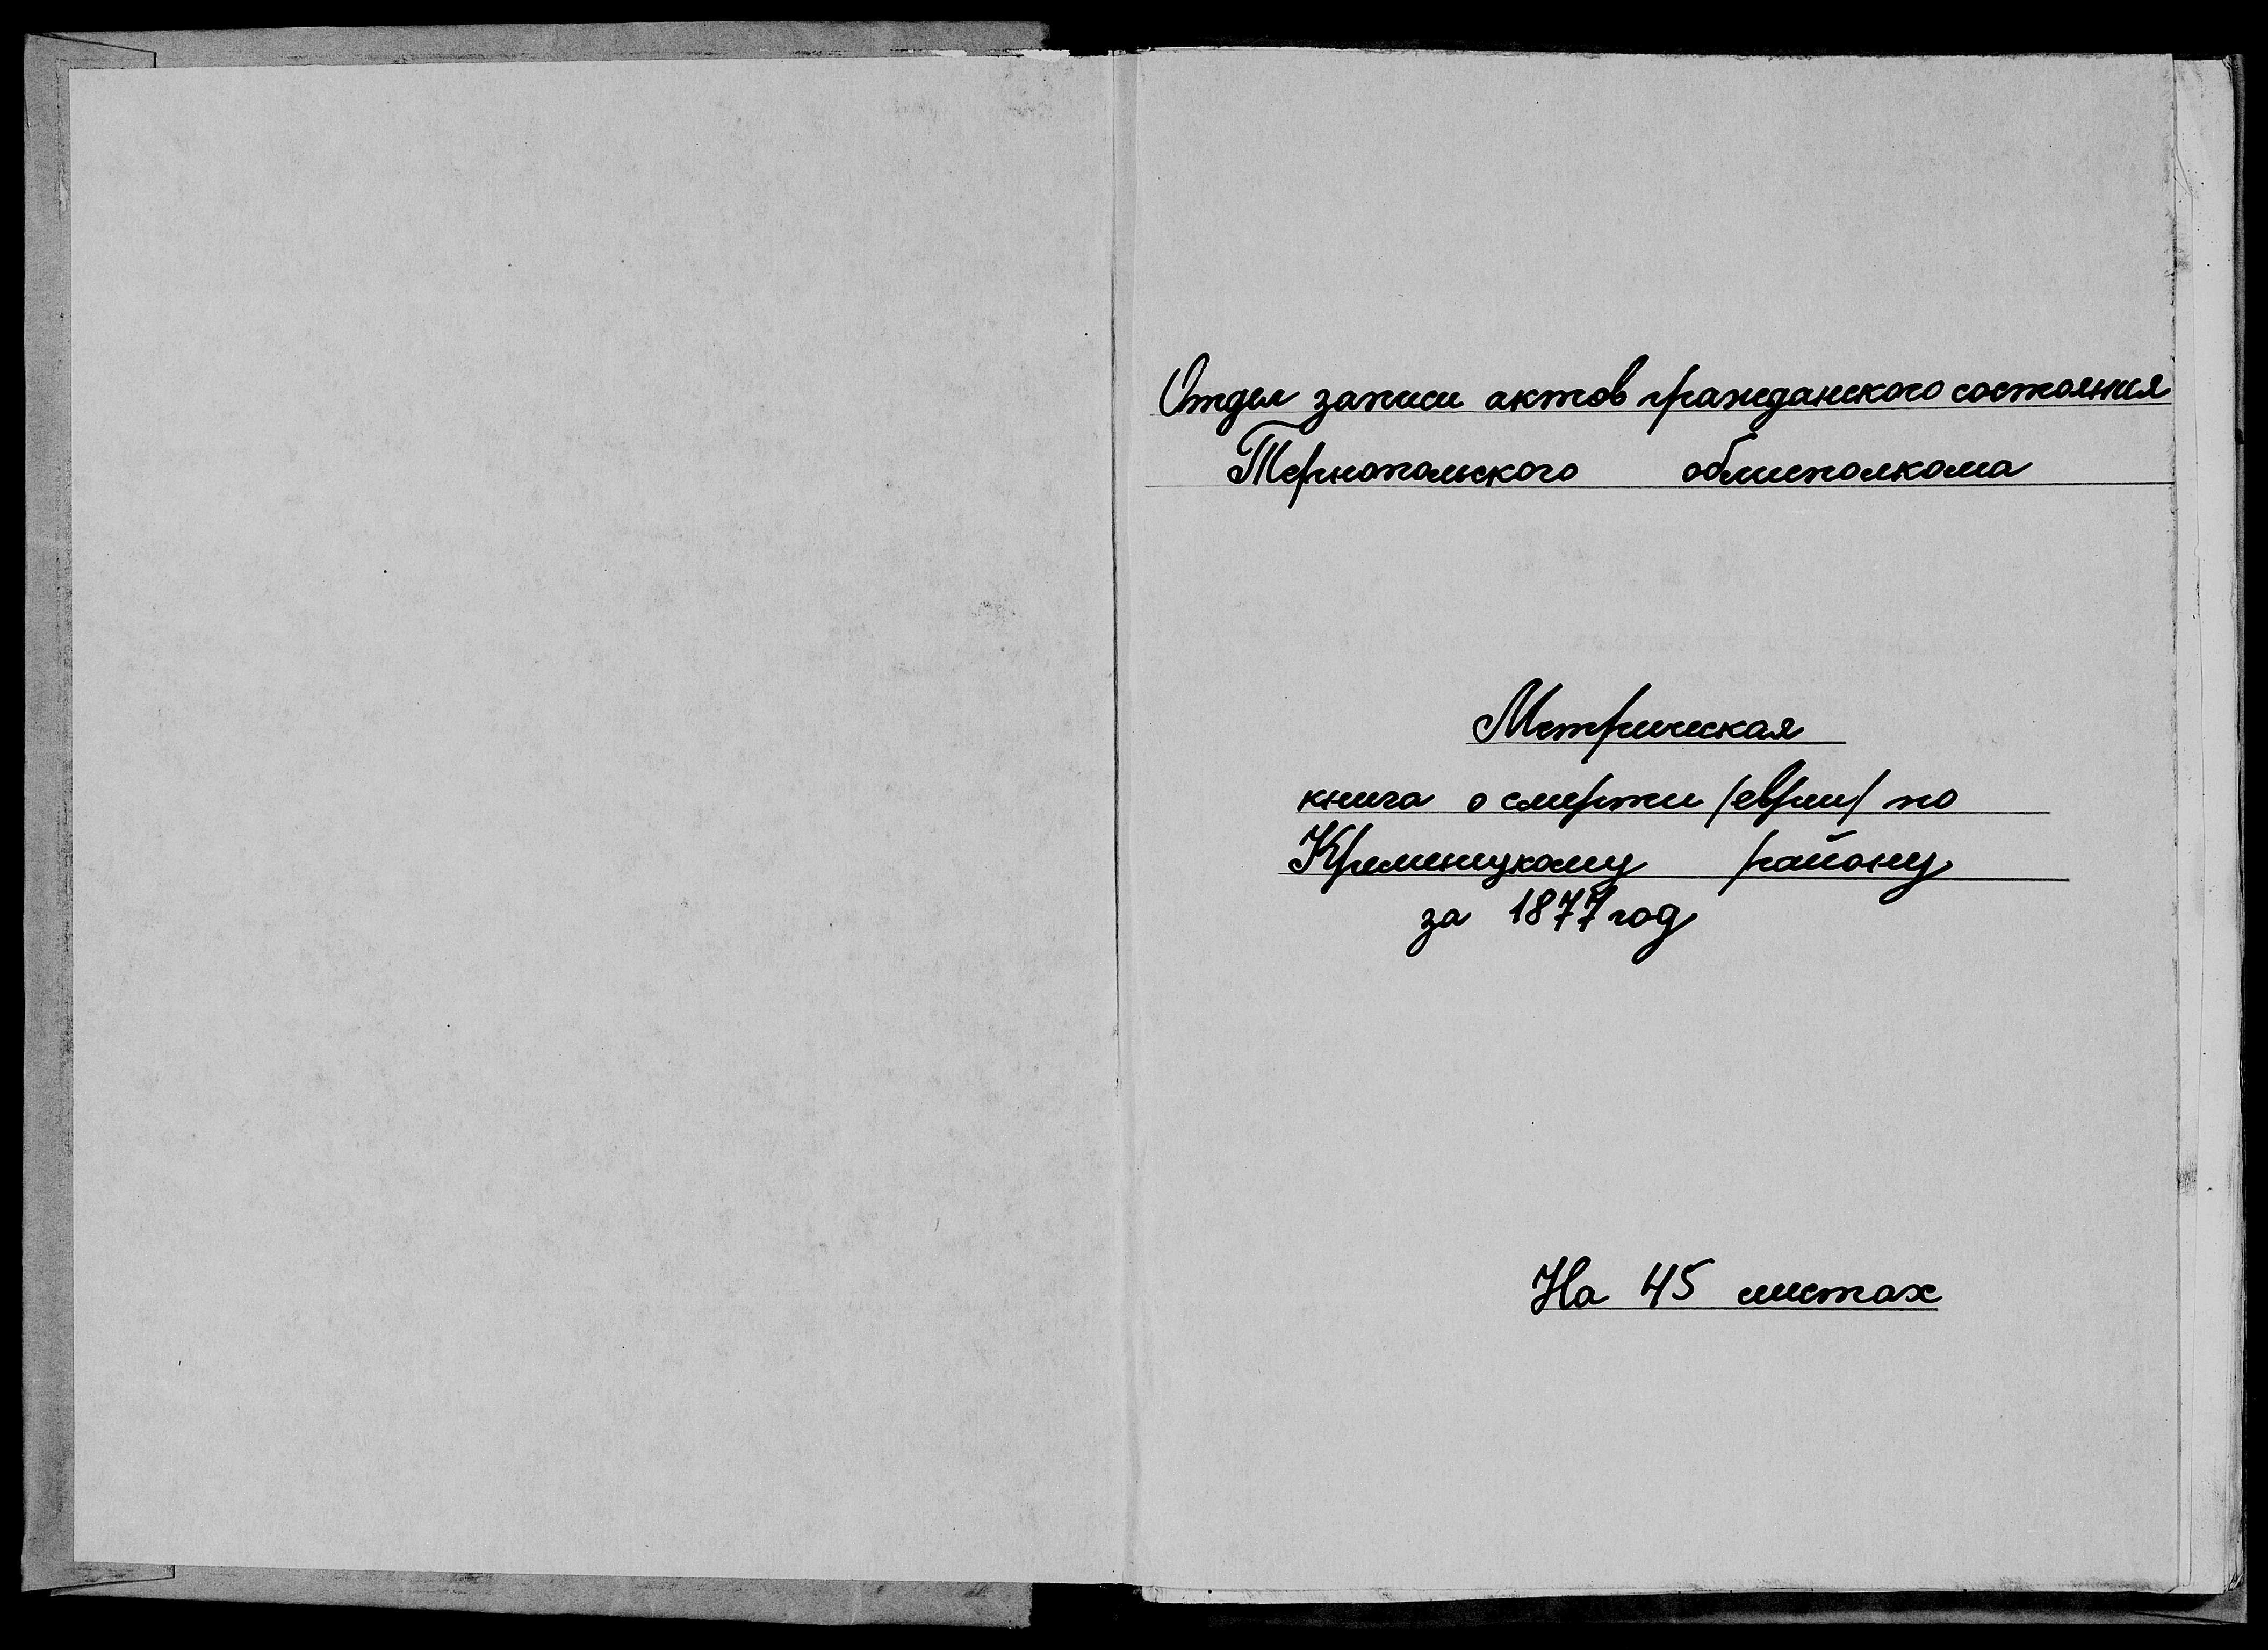 Отдел записи актов гражданского состояния
Тернопольского облисполкома
Метрическая
книга о смерти /евреи/ по
Кременецкому району
за 1877 год
На 45 листах